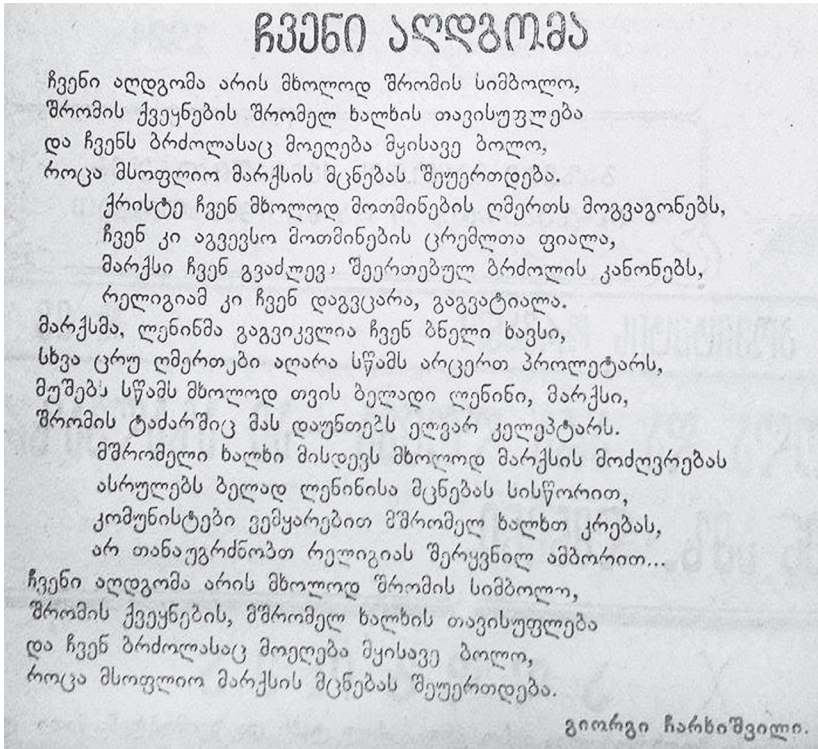 ჩვენი აღდგომა
ჩვენი აღდგომა არის მხოლოდ შრომის სიმბოლო,
შრომის ქვეყნების შრომელ ხალხის თავისუფლება
და ჩვენს ბრძოლასაც მოეღება მყისავე ბოლო,
როცა მსოფლიო მარქსის მცნებას შეუერთდება.
ქრისტე ჩვენ მხოლოდ მოთმინების ღმერთს მოგვაგონებს,
ჩვენ კი აგვევსო მოთმინების ცრემლთა ფიალა,
მარქსი ჩვენ გვაძლევ, შეერთებულ ბრძოლის კანონებს,
რელიგიამ კი ჩვენ დაგვცარა, გაგვატიალა.
მარქსმა, ლენინმა გაგვიკვლია ჩვენ ბნელი ხავსი,
სხვა ცრუ ღმერთები აღარა სწამს არცერთ პროლეტარს,
მუშებს სწამს მხოლოდ თვის ბელადი ლენინი, მარქსი,
შრომის ტაძარშიც მას დაუნთებს ელვარ კელეპტარს.
მშრომელი ხალხი მისდევს მხოლოდ მარქსის მოძღვრებას
ასრულებს ბელად ლენინისა მცნებას სისწორით,
კომუნისტები ვემყარებით მშრომელ ხალხთ კრებას,
არ თანაუგრძნობთ რელიგიას შერყვნილ ამბორით...
ჩვენი აღდგომა არის მხოლოდ შრომის სიმბოლო,
შრომის ქვეყნების, მშრომელ ხალხის თავისუფლება
და ჩვენ ბრძოლასაც მოეღება მყისავე ბოლო,
როცა მსოფლიო მარქსის მცნებას შეუერთდება.
გიორგი ჩარხიშვილი.